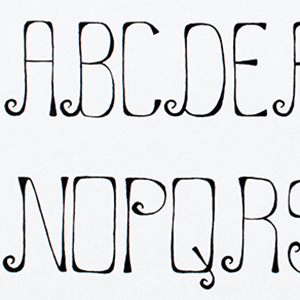 ABCDEF
NOPQRS